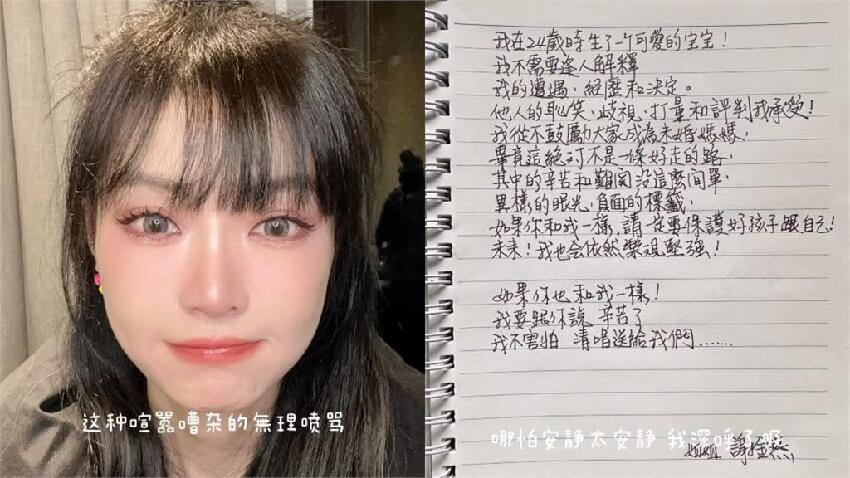 这种喧嚣嘈杂的無理喷骂
我在24歲時生了一个可愛的宝宝！
我不需要逢人解釋
我的遭遇、經歷和決定。
他人的恥笑、歧視、打量和評判我承受！
我從不鼓勵大家成為未婚媽媽，
畢竟這絕对不是一條好走的路，
其中的辛苦和難関没這麼簡單，
異樣的眼光，負面的標籤，
如果你和我一樣，請一定要保護好孩子跟自己！
未来！我也会依然樂观堅強！
如果你也和我一樣！
我要跟你說 辛苦了
我不害怕 清唱送給我們......
哪怕安静太安静 我深呼了
姐姐 謝金燕